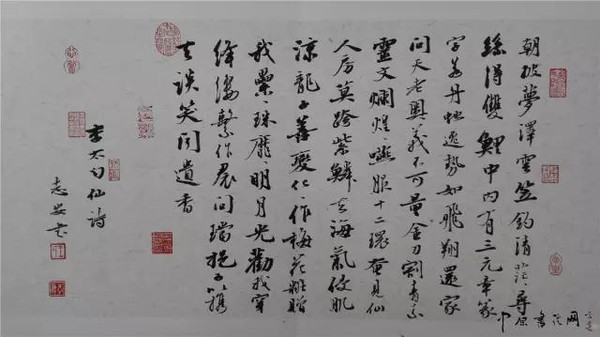 朝披夢澤雲笠釣清茫々尋
絲得雙鯉中内有三元章篆
字若丹蛇逸勢如飛翔還家
問天老奧義不可量金刀割青素
靈文爛煌々嚥服十二環奄見仙
人房莫跨紫鱗去海氣侵肌
涼龍子善變化々作梅花妝贈
我纍々珠靡明月光勸我穿
絳縷繫作裾間璫挹子以攜
去談笑聞遺香
李太白仙詩
志安書
中原書法网